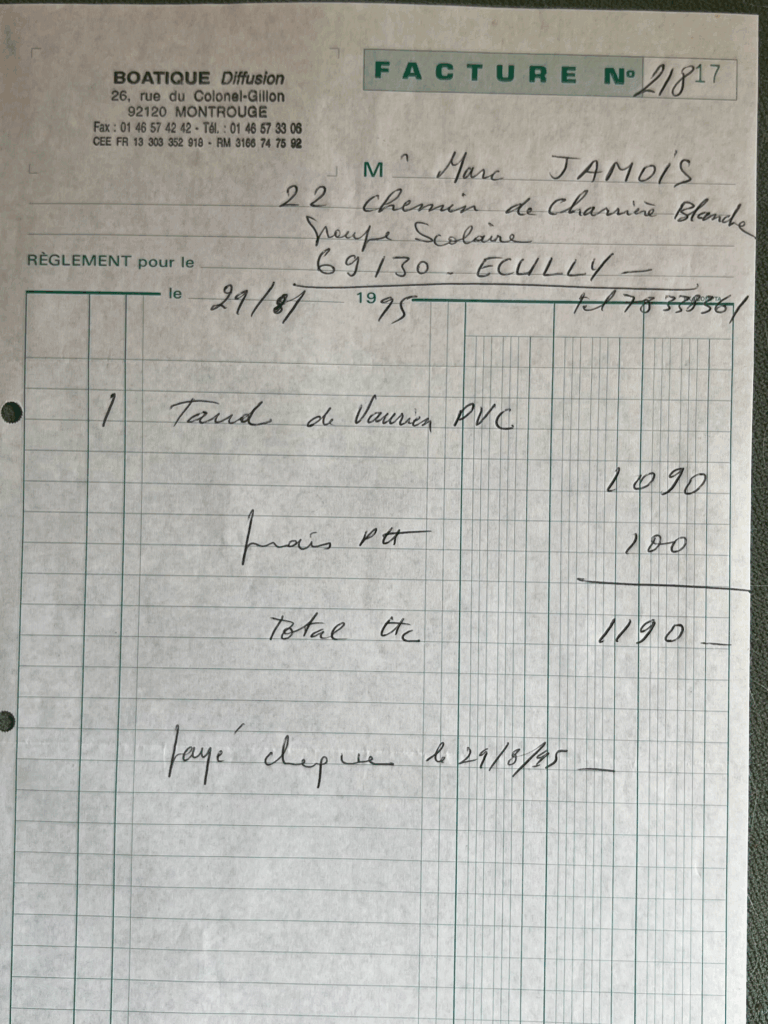 BOATIQUE Diffusion
26, rue du Colonel-Gillon
92120 MONTROUGE
Fax : 01 46 57 42 42 - Tél. : 01 46 57 33 06
CEE FR 13 303 352 918 - RM 3166 74 75 92
FACTURE N° 21817
M r Marc JAMOIS
22 Chemin de Charrière Blanche
Groupe Scolaire
RÈGLEMENT pour le
69130 - ECULLY -
le 29/8/ 1995
tel 78 338361
1 Taud de Vaurien PVC
1090
frais Ptt 100
Total ttc 1190 -
payé cheque le 29/8/95 -